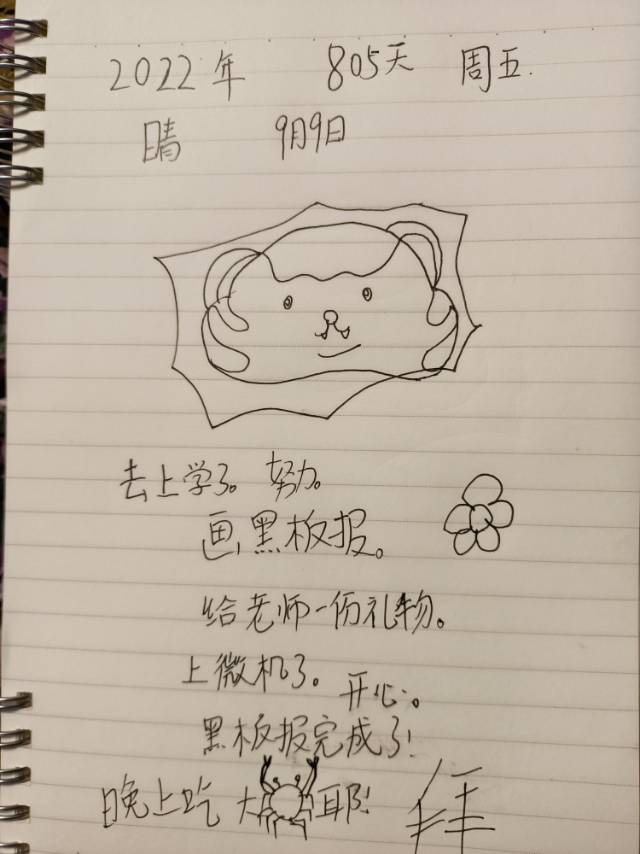 2022年 805天 周五.
晴 9月9日
去上学了。努力。
画黑板报。
给老师一份礼物。
上微机了。开心。
黑板报完成了!
晚上吃大耶!
拜